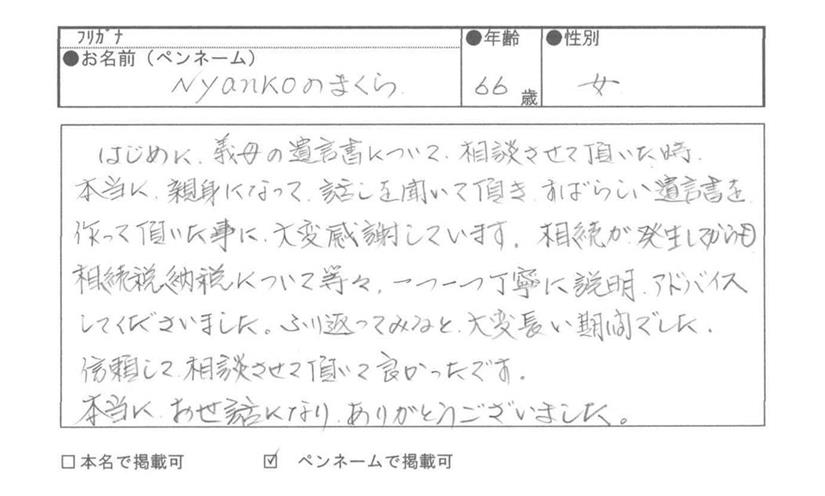 フリガナ
●お名前（ペンネーム）
Nyankoのまくら
●年齢
66歳
●性別
女
はじめに、義母の遺言書について、相談させて頂いた時、
本当に、親身になって、話しを聞いて頂き、すばらしい遺言書を
作って頂いた事に、大変感謝しています。相続が発生してからも
相続税納税について等々、一つ一つ丁寧に説明、アドバイス
してくださいました。ふり返ってみると、大変長い期間でした。
信頼して、相談させて頂いて良かったです。
本当に、お世話になり、ありがとうございました。
□本名で掲載可
☑ ペンネームで掲載可